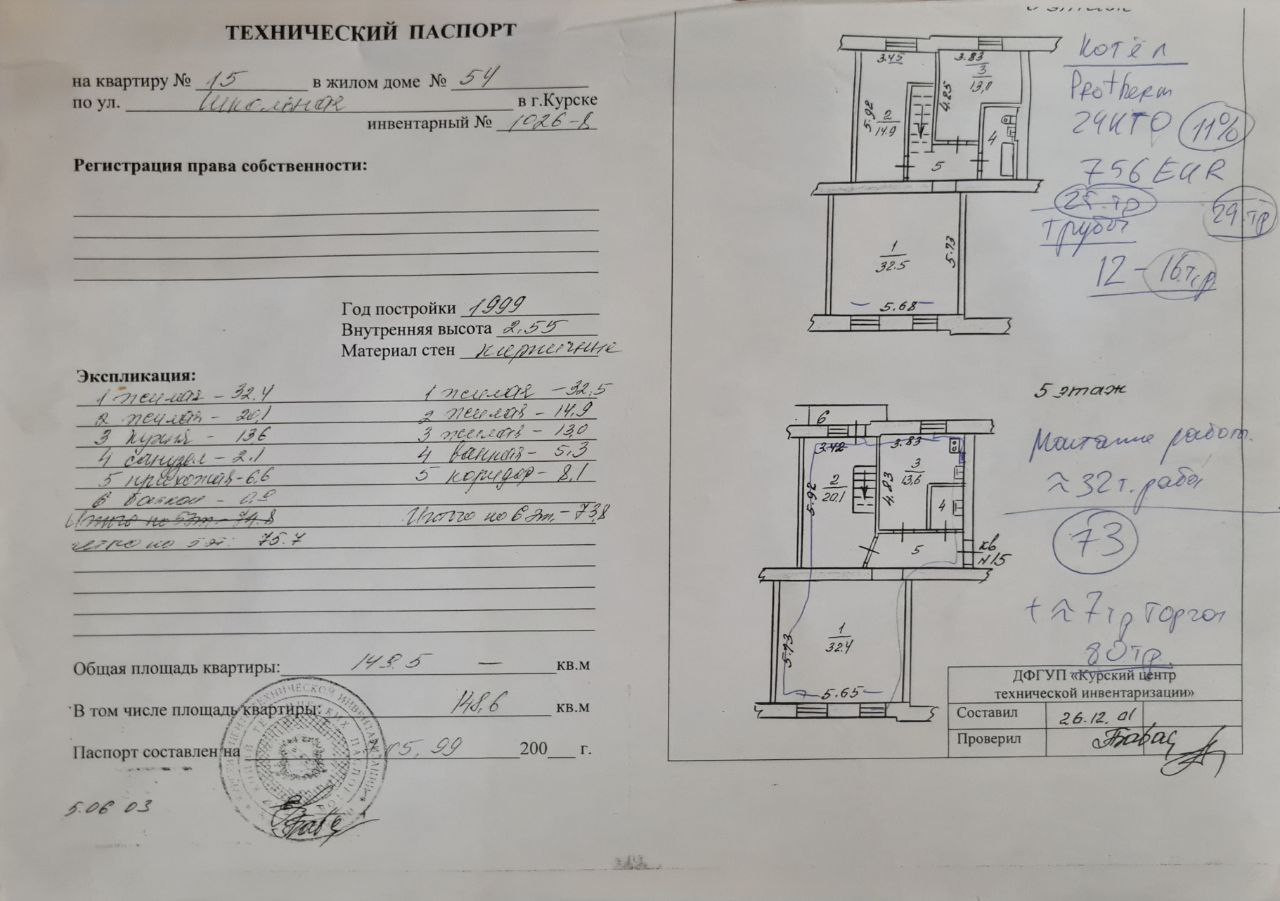 ТЕХНИЧЕСКИЙ ПАСПОРТ
на квартиру № 15 в жилом доме № 54
по ул. Школьная в г.Курске
инвентарный № 1026-8
Регистрация права собственности:
Год постройки 1999
Внутренняя высота 2,55
Материал стен кирпичные
Экспликация:
1 жилая - 32,4 1 жилая - 32,5
2 жилая - 20,1 2 жилая - 14,9
3 кухня - 13,6 3 жилая - 13,0
4 санузел - 2.1 4 ванная - 5,3
5 прихожая - 6,6 5 коридор - 8,1
6 балкон - 0,9
Итого по 5 эт. - 74.8 Итого по 6 эт. - 73,8
по 5 эт: 75.7
Общая площадь квартиры: 149.5 — кв.м
В том числе площадь квартиры: 148,6 кв.м
Паспорт составлен на 05.99 200 г.
5.06 03
3.45
3.83
3
13,0
5.92
2
14.9
4.25
4
5
1
32.5
5.73
5.68
Котёл
Protherm
24КТО 11%
756 EUR
29 тр
трубы
12 - 16 т.р.
5 этаж
6
3.42
3.83
5.92
2
20,1
4.23
3
13,6
4
5
кв
№15
5.73
1
32.4
5.65
≈ 32 т. раба
73
+ ≈ 7 тр
80 тр.
ДФГУП «Курский центр
технической инвентаризации»
Составил 26.12.01
Проверил